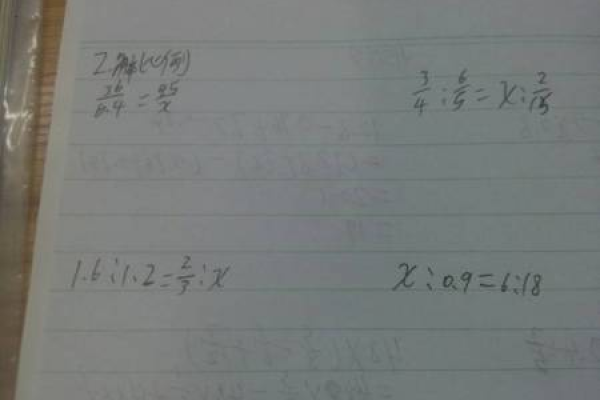 2.解比例
36/6.4 = 45/x
3/4 : 6/5 = x : 2/15
1.6 : 1.2 = 2/3 : x
x : 0.9 = 6 : 18